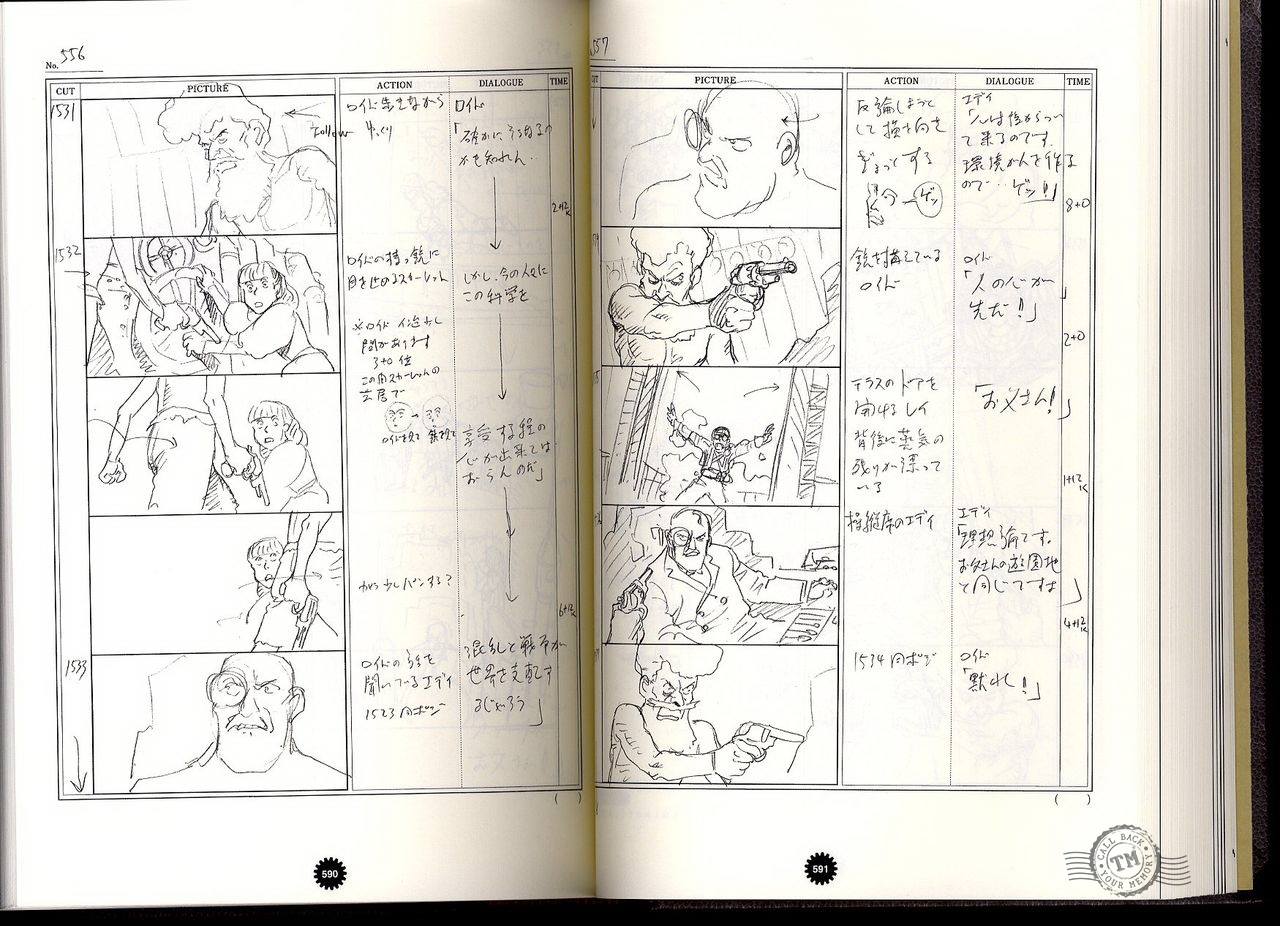 No. 556
CUT
PICTURE
ACTION
DIALOGUE
TIME
1531
Follow
ロイド歩きながら
ゆっくり
ロイド
「確かにそうなるの
かも知れん…
2+12K
1532
ロイドの持つ銃に
目を止めるスカーレット
しかし、今の人々に
この科学を
※ロイド
間があります
3+0位
この間スカーレットの
芝居で
享受する程の
心が出来ては
おらんのだ」
から少しパンする?
6+12K
1533
ロイドの話を
聞いているエディ
1523同ポジ
混乱と戦争が
世界を支配す
るじゃろう」
( )
590
557
CUT
PICTURE
ACTION
DIALOGUE
TIME
反論しようと
して振り向き
ぎょっとする
ゲッ
エディ
「心は後からつい
て来るのです。
環境が人を作る
ので…ゲッ!!」
8+0
銃を構えている
ロイド
ロイド
「人の心が
先だ!!」
2+0
テラスのドアを
開けるレイ
背後に蒸気の
残りが漂って
いる
「お父さん!」
1+12K
操縦席のエディ
エディ
「理想論です。
お父さんの遊園地
と同じですよ」
4+12K
1534同ポジ
ロイド
「黙れ!」
( )
591
CALL BACK
TM
YOUR MEMORY